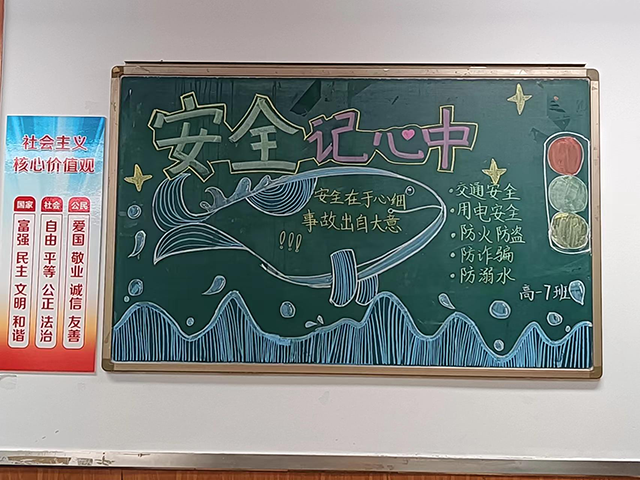 社会主义
核心价值观
国家
富强 民主 文明 和谐
社会
自由 平等 公正 法治
公民
爱国 敬业 诚信 友善
安全记心中
安全在于心细
事故出自大意
!!!
·交通安全
·用电安全
·防火防盗
·防诈骗
·防溺水
高一7班